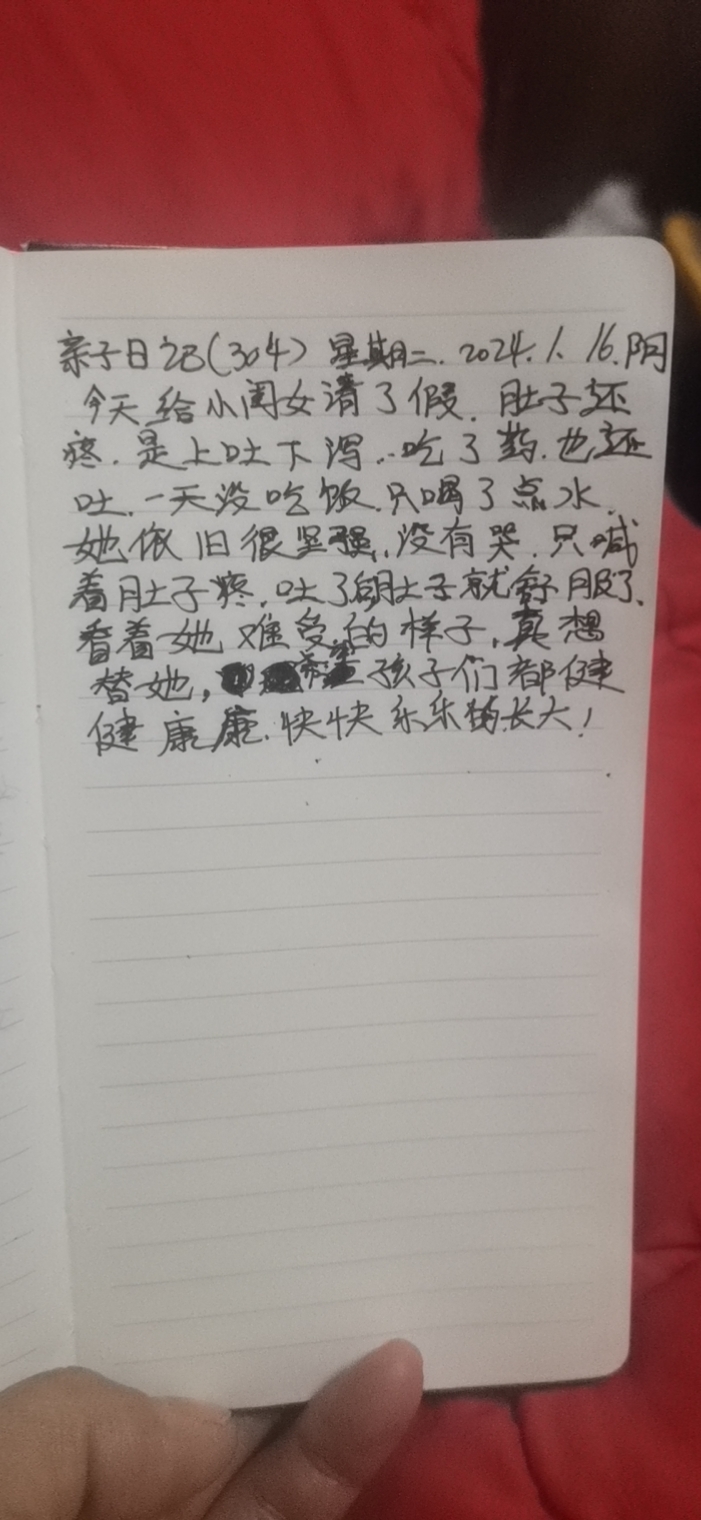 亲子日记(304) 星期二. 2024.1.16.阴
今天给小闺女请了假. 肚子还
疼. 是上吐下泻... 吃了药. 也还
吐. 一天没吃饭. 只喝了点水.
她依旧很坚强. 没有哭. 只喊
着肚子疼. 吐了肚子就舒服了.
看着她难受的样子, 真想
替她, 希望孩子们都健
健康康. 快快乐乐的长大!